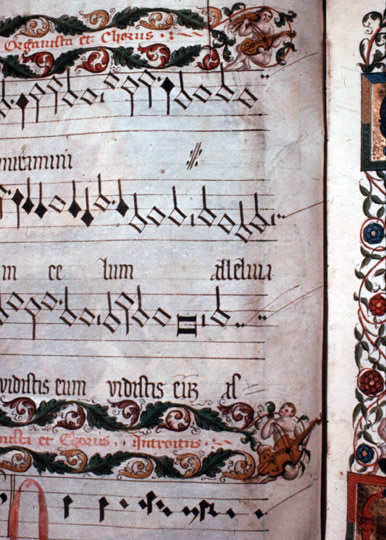 Organista et Chorus
in ce lum alleluia
vidistis eum vidistis eū
et Chorus, Introitus